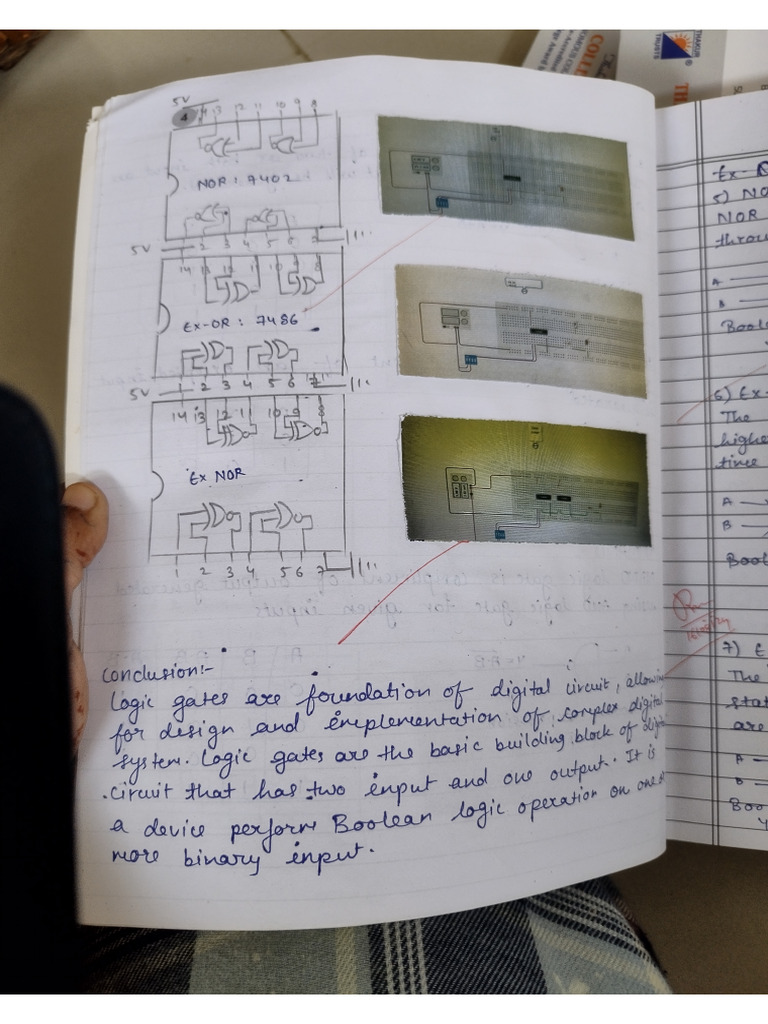 5V
4
14 13 12 11 10 9 8
NOR : 7402
1 2 3 4 5 6 7
5V
14 13 12 11 10 9 8
Ex-OR : 7486
1 2 3 4 5 6 7
5V
14 13 12 11 10 9 8
Ex NOR
1 2 3 4 5 6 7
Conclusion:-
Logic gates are foundation of digital circuit, allowing
for design and implementation of complex digital
system. Logic gates are the basic building block of digital
circuit that has two input and one output. It is
a device perform Boolean logic operation on one or
more binary input.
THAKUR
TRUSTS
COLLE
TH
Ex-
5) NO
NOR
throu
A
B
Bool
6) Ex-
The
highe
time
A
B
Bool
7) E
The
stat
are
A
B
Boo